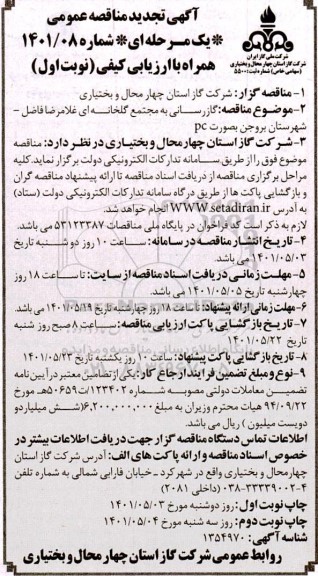 آگهی تجدید مناقصه عمومی
*یک مرحله ای* شماره ۱۴۰۱/۰۸
همراه با ارزیابی کیفی (نوبت اول)
شرکت ملی گاز ایران
شرکت گاز استان چهار محال و بختیاری
(سهامی خاص) شماره ثبت: ۵۵۰۰
۱- مناقصه گزار: شرکت گاز استان چهار محال و بختیاری
۲- موضوع مناقصه: گازرسانی به مجتمع گلخانه ای غلامرضا فاضل -
شهرستان بروجن بصورت pc
۳- شرکت گاز استان چهار محال و بختیاری در نظر دارد: مناقصه
موضوع فوق را از طریق سامانه تدارکات الکترونیکی دولت برگزار نماید. کلیه
مراحل برگزاری مناقصه از دریافت اسناد مناقصه تا ارائه پیشنهاد مناقصه گران
و بازگشایی پاکت ها از طریق درگاه سامانه تدارکات الکترونیکی دولت (ستاد)
به آدرس WWW.setadiran.ir انجام خواهد شد.
لازم به ذکر است کد فراخوان در پایگاه ملی مناقصات ۵۳۱۲۳۳۸۷ می باشد.
۴- تاریخ انتشار مناقصه در سامانه: ساعت ۱۰ روز دو شنبه تاریخ
۱۴۰۱/۰۵/۰۳ می باشد.
۵- مهلت زمانی دریافت اسناد مناقصه از سایت: تا ساعت ۱۸ روز
چهارشنبه تاریخ ۱۴۰۱/۰۵/۰۵ می باشد.
۶- مهلت زمانی ارائه پیشنهاد: تا ساعت ۱۸ روز چهارشنبه تاریخ ۱۴۰۱/۰۵/۱۹ می باشد.
۷- تاریخ بازگشایی پاکت ارزیابی مناقصه: ساعت ۸ صبح روز شنبه
تاریخ ۱۴۰۱/۰۵/۲۲
۸- تاریخ بازگشایی پاکت پیشنهاد: ساعت ۱۰ روز یکشنبه تاریخ ۱۴۰۱/۰۵/۲۳
۹- نوع و مبلغ تضمین فرایند ارجاع کار: یکی از تضامین معتبر در آیین نامه
تضمین معاملات دولتی مصوبه شماره ۱۲۳۴۰۲/ت۵۰۶۵۹هـ مورخ
۹۴/۰۹/۲۲ هیات محترم وزیران به مبلغ ۶,۲۰۰,۰۰۰,۰۰۰ (شش میلیارد و
دویست میلیون) ریال می باشد.
اطلاعات تماس دستگاه مناقصه گزار جهت دریافت اطلاعات بیشتر در
خصوص اسناد مناقصه و ارائه پاکت های الف: آدرس شرکت گاز استان
چهارمحال و بختیاری واقع در شهرکرد - خیابان فارابی شمالی به شماره تلفن
۴-۳۳۳۳۹۰۰۲-۰۳۸ (داخلی ۲۰۸۱)
چاپ نوبت اول: روز دوشنبه مورخ ۱۴۰۱/۰۵/۰۳
چاپ نوبت دوم: روز سه شنبه مورخ ۱۴۰۱/۰۵/۰۴
شناسه آگهی: ۱۳۵۴۹۷۰
روابط عمومی شرکت گاز استان چهار محال و بختیاری